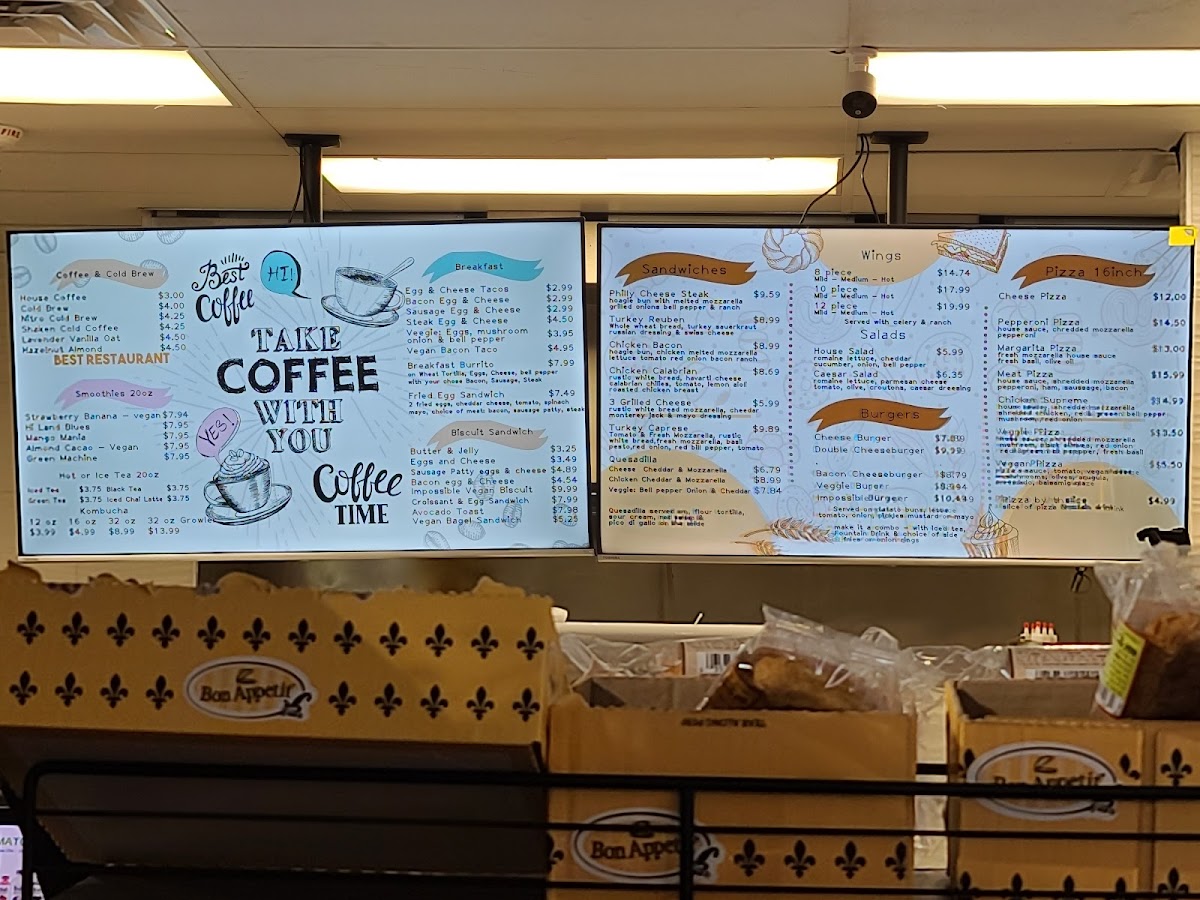 FIRE
Coffee & Cold Brew
House Coffee $3.00
Cold Brew $4.00
Nitro Cold Brew $4.25
Shaken Cold Coffee $4.25
Lavender Vanilla Oat $4.50
Hazelnut Almond $4.50
BEST RESTAURANT
Smoothies 20oz
Strawberry Banana - vegan $7.94
Hi Land Blues $7.95
Mango Mania $7.95
Almond Cacao - Vegan $7.95
Green Machine $7.95
Hot or Ice Tea 20oz
Iced Tea $3.75 Black Tea $3.75
Green Tea $3.75 Iced Chai Latte $3.75
Kombucha
12 oz 16 oz 32 oz 32 oz Growler
$3.99 $4.99 $8.99 $13.99
Best
Coffee
HI!
TAKE
COFFEE
WITH
YOU
YES!
Coffee
TIME
Breakfast
Egg & Cheese Tacos $2.99
Bacon Egg & Cheese $2.99
Sausage Egg & Cheese $2.99
Steak Egg & Cheese $4.50
Veggie: Eggs, mushroom $3.95
onion & bell pepper
Vegan Bacon Taco $4.95
Breakfast Burrito $7.99
on Wheat Tortilla, Eggs, Cheese, bell pepper
with your chose Bacon, Sausage, Steak
Fried Egg Sandwich $7.49
2 fried eggs, cheddar cheese, tomato, spinach
mayo, choice of meat: bacon, sausage patty, steak
Biscuit Sandwich
Butter & Jelly $3.25
Eggs and Cheese $3.49
Sausage Patty eggs & cheese $4.89
Bacon egg & Cheese $4.54
Impossible Vegan Biscuit $9.99
Croissant & Egg Sandwich $7.99
Avocado Toast $7.98
Vegan Bagel Sandwich $5.25
Sandwiches
Philly Cheese Steak $9.59
hoagie bun with melted mozzarella
grilled onions bell pepper & ranch
Turkey Reuben $8.99
Whole wheat bread, turkey sauerkraut
russian dressing & swiss cheese
Chicken Bacon $8.99
hoagie bun, chicken melted mozzarella
lettuce tomato red onion bacon ranch
Chicken Calabrian $8.69
rustic white bread, havarti cheese
calabrian chilies, tomato, lemon aioli
roasted chicken breast
3 Grilled Cheese $5.99
rustic white bread mozzarella, cheddar
monterey jack & mayo dressing
Turkey Caprese $9.89
Tomato & Fresh Mozzarella, rustic
white bread, fresh mozzarella, basil
pesto, red onion, red bell pepper, tomato
Quesadilla
Cheese Cheddar & Mozzarella $6.79
Chicken Cheddar & Mozzarella $8.99
Veggie: Bell pepper Onion & Cheddar $7.84
Quesadilla served w/ flour tortilla,
sour cream, red salsa &
pico di gallo on the side
Wings
8 piece $14.74
Mild - Medium - Hot
10 piece $17.99
Mild - Medium - Hot
12 piece $19.99
Mild - Medium - Hot
Served with celery & ranch
Salads
House Salad $5.99
romaine lettuce, cheddar
cucumber, onion, bell pepper
Caesar Salad $6.35
romaine lettuce, parmesan cheese
tomato, olive, croutons, caesar dressing
Burgers
Cheese Burger $7.89
Double Cheeseburger $9.99
Bacon Cheeseburger $8.79
Veggie Burger $8.94
Impossible Burger $10.49
Served on potato buns, lettuce
tomato, onion, pickles mustard or mayo
make it a combo - with iced tea,
Fountain Drink & choice of side
fries or onion rings
Pizza 16inch
Cheese Pizza $12.00
Pepperoni Pizza $14.50
house sauce, shredded mozzarella
pepperoni
Margarita Pizza $13.00
fresh mozzarella house sauce
fresh basil, olive oil
Meat Pizza $15.99
house sauce, shredded mozzarella
pepperoni, ham, sausages, bacon
Chicken Supreme $14.99
house sauce, shredded mozzarella
shredded chicken, red & green bell pepper
mushroom, red onion
Veggie Pizza $13.50
Vegan Pizza $15.50
Pizza by the slice $4.99
slice of pizza fountain drink
Bon Appetit
Bon Appetit
Bon Appetit